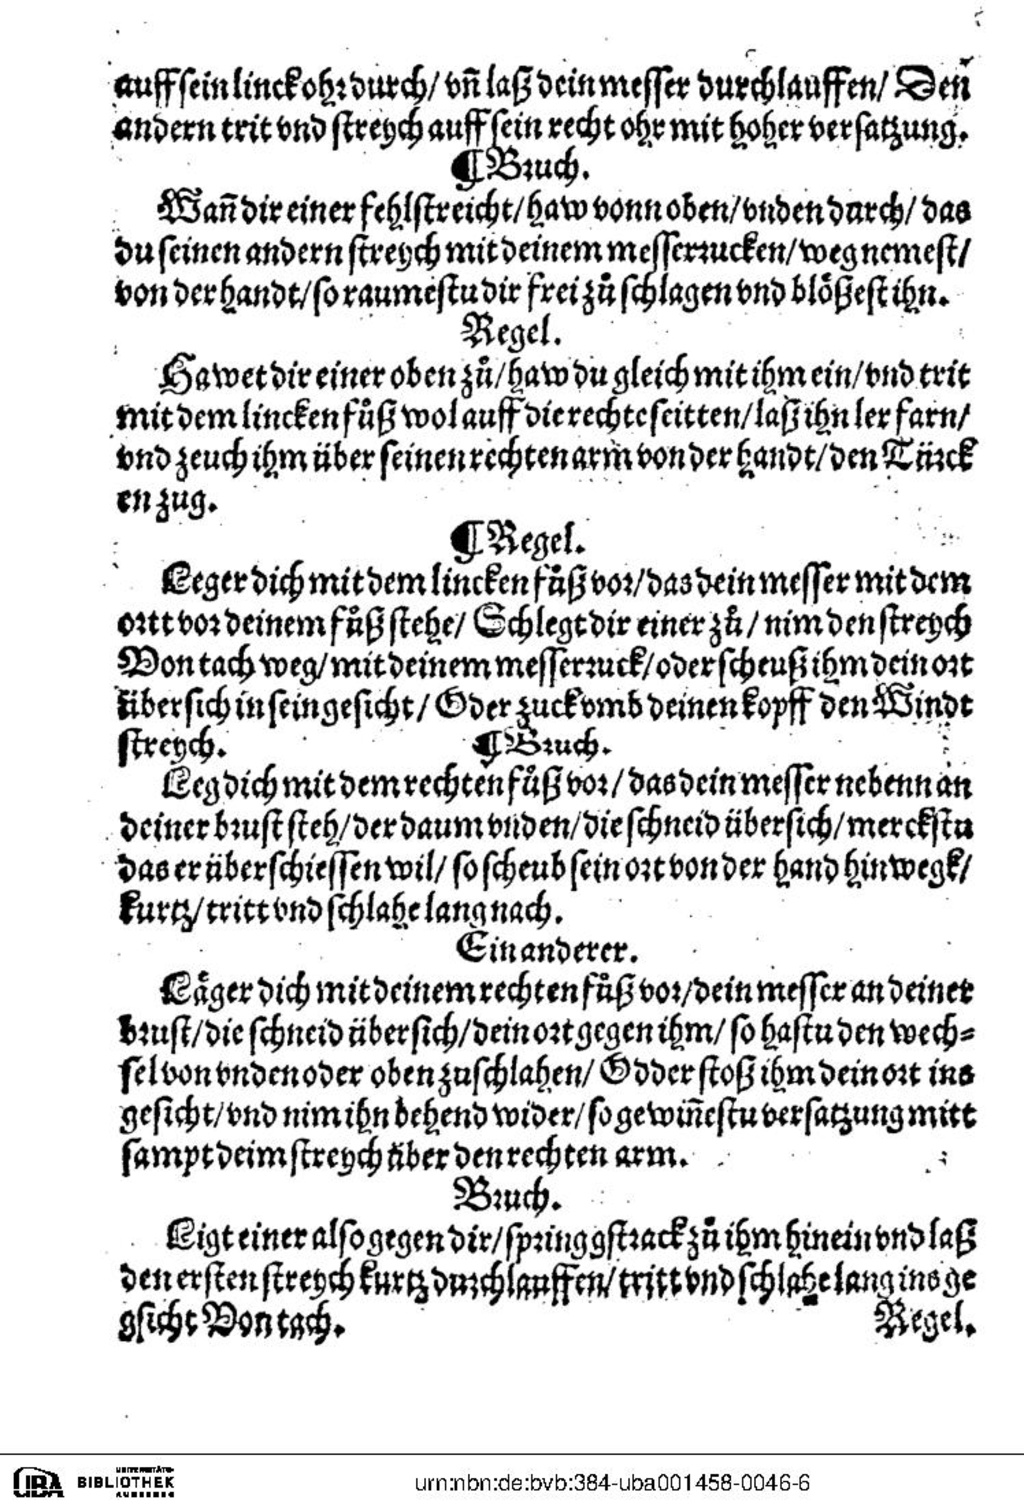 auff sein linck ohr durch/ vñ laß dein messer durchlauffen/ Den
andern trit vnd streych auff sein recht ohr mit hoher versatzung.
¶ Bruch.
Wañ dir einer fehlstreicht/ haw vonn oben/ vnden durch/ das
du seinen andern streych mit deinem messerrucken/ weg nemest/
von der handt/ so raumestu dir frei zů schlagen vnd blössest ihn.
Regel.
Hawet dir einer oben zů/ haw du gleich mit ihm ein/ vnd trit
mit dem lincken fůß wol auff die rechte seitten/ laß ihn ler farn/
vnd zeuch ihm über seinen rechten arm von der handt/ den Türck
en zug.
¶ Regel.
Leger dich mit dem lincken fůß vor/ das dein messer mit dem
ortt vor deinem fůß stehe/ Schlegt dir einer zů/ nim den streych
Von tach weg/ mit deinem messerruck/ oder scheuß ihm dein ort
übersich in sein gesicht/ Oder zuck vmb deinen kopff den Windt
streych. ¶ Bruch.
Leg dich mit dem rechten fůß vor/ das dein messer nebenn an
deiner brust steh/ der daum vnden/ die schneid übersich/ merckstu
das er überschiessen wil/ so scheub sein ort von der hand hinwegk/
kurtz/ tritt vnd schlahe lang nach.
Ein anderer.
Läger dich mit deinem rechten fůß vor/ dein messer an deiner
brust/ die schneid übersich/ dein ort gegen ihm/ so hastu den wech=
sel von vnden oder oben zuschlahen/ Odder stoß ihm dein ort ins
gesicht/ vnd nim ihn behend wider/ so gewiñestu versatzung mitt
sampt deim streych über den rechten arm.
Bruch.
Ligt einer also gegen dir/ spring gstrack zů ihm hinein vnd laß
den ersten streych kurtz durchlauffen/ tritt vnd schlahe lang ins ge
gsicht Von tach. Regel.
UBA UNIVERSITÄTS-
BIBLIOTHEK
AUGSBURG
urn:nbn:de:bvb:384-uba001458-0046-6